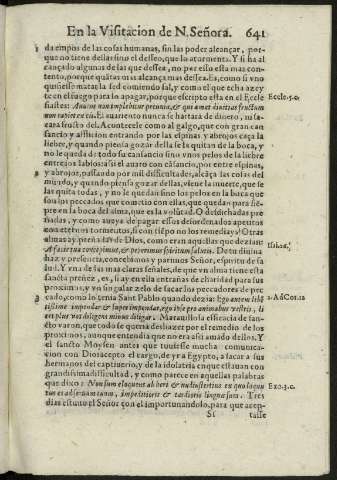 En la Visitacion de N. Señora. 641
da empos de las cosas humanas, sin las poder alcançar, por-
que no tiene dellas sino el desseo, que lo atormenta. Y si ha al
cançado algunas de las que dessea, no por esso esta mas con-
tento, porque quãtas mas alcança mas dessea. Es, como si vno
quisiesse matar la sed comiendo sal, y como el que echa azey
te en el fuego para lo apagar, porque escripto esta en el Eccle
siastes: Auarus non implebitur pecunia, & qui amat diuitias fructum
non capiet ex eis. El auariento nunca se hartara de dinero, ni sa-
cara fructo del. Acontecele como al galgo, que con gran can
sancio y affliction entrando por las espinas y abrojos caça la
liebre, y quando piensa gozar della se la quitan de la boca, y
no le queda de todo su cansancio sino vnos pelos de la liebre
entre los labios: assi el auaro con cansancio, por entre espinas,
y abrojos, passando por mil difficultades, alcança las cosas del
mundo, y quando piensa gozar dellas, viene la muerte, que se
las quita todas, y no le quedan sino los pelos en la boca que
son los peccados que cometio con ellas, que quedan para lie-
pre en la boca del alma, que es la volũtad. O desdichadas pre
ñadas, y como aueys de pagar essos desordenados apetitos
con eternos tormentos, si con tiẽpo no los remediays! Otras
almas ay preñadas de Dios, como eran aquellas que dezian:
A facie tua concepimus, & peperimus spiritum salutis. De tu diuina
haz y presencia, concebimos y parimos Señor, espiritu de sa
lud. Y vna de las mas claras señales, de que vn alma tiene esta
sancta preñez, es, si ay en ella entrañas de charidad para sus
proximos, y vn singular zelo de sacar los peccadores de pec
cado, como lo tenia Sant Pablo quando dezia: Ego autem libẽ
tissime impendar & superimpendar, ego ipse pro animabus vestris, li
cet plus vos diligens minus diligar. Marauillosa efficacia de san-
cto varon, que todo se queria deshazer por el remedio de los
proximos, aunque entendia que no era assi amado dellos. Y
el sancto Moysen antes que tuuiesse mucha comunica-
cion con Dios acepto el cargo, de yr a Egypto, a sacar a sus
hermanos del captiuerio, y de la idolatria en que estauan con
grandissima difficultad, y como parece en aquellas palabras
que dixo: Non sum eloquens ab heri & nudiustertius ex quo loquu
tus es ad seruum tuum, impeditioris & tardioris linguæ sum. Tres
dias estuuo el Señor con el importunandolo, para que acep-
Sſ tasse
Eccle.5.c.
Esai.26.
2.Ad Cor.12
Exo.3.c.